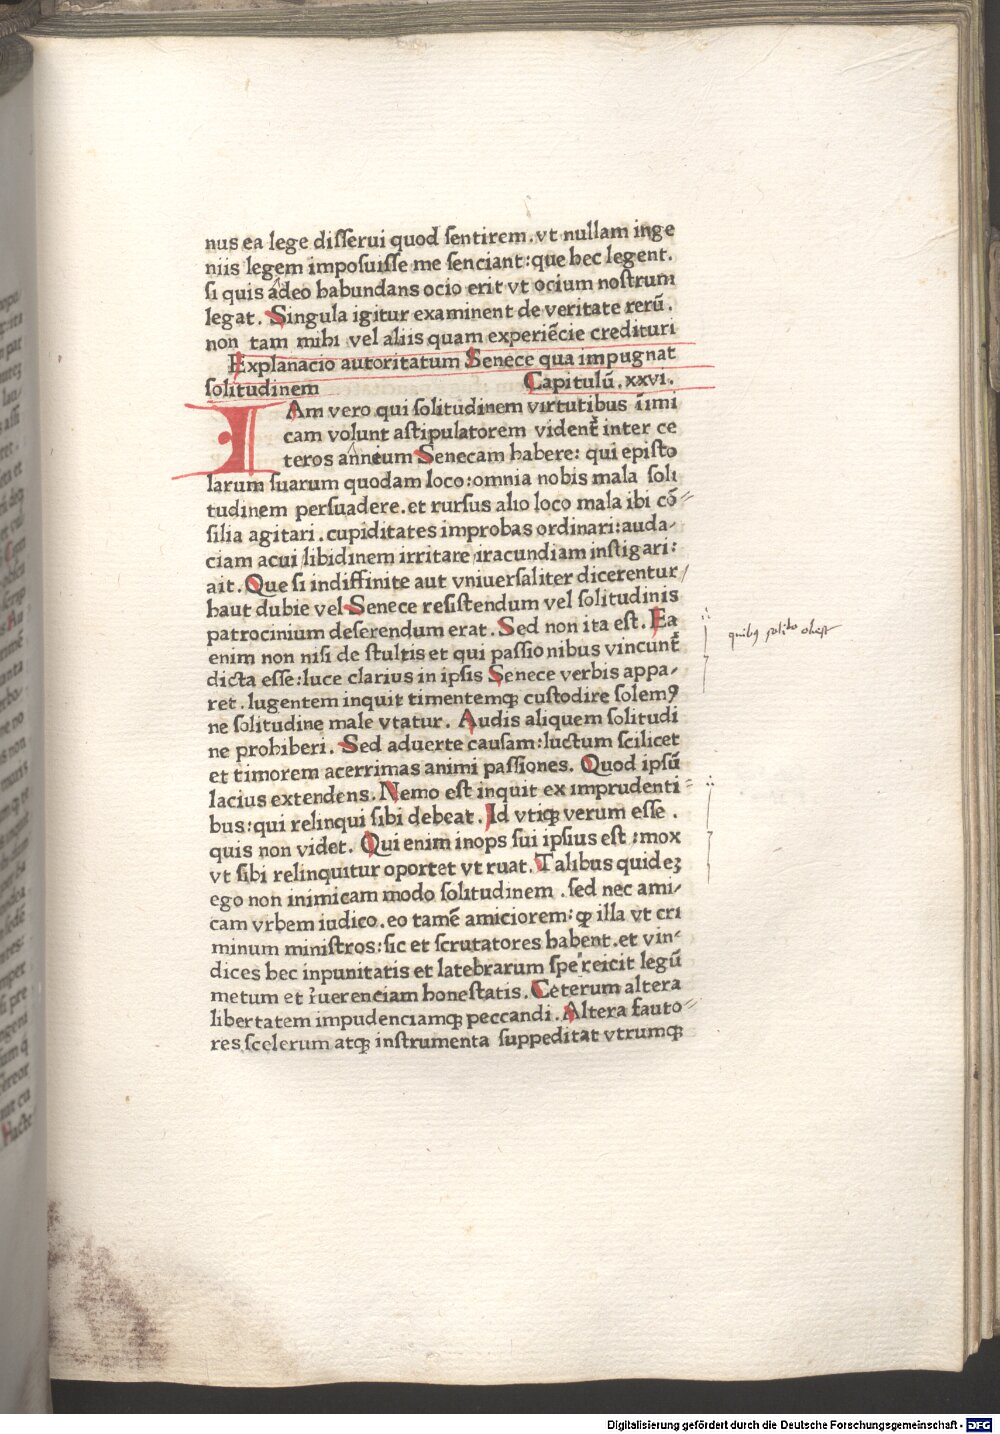 nus ea lege disserui quod sentirem. vt nullam inge
niis legem imposuisse me senciant: que hec legent.
si quis adeo habundans ocio erit vt ocium nostrum
legat. Singula igitur examinent de veritate rerū.
non tam mihi vel aliis quam experiēcie credituri
Explanacio autoritatum Senece qua impugnat
solitudinem Capitulū. xxvi.
IAm vero qui solitudinem virtutibus īimi
cam volunt astipulatorem vident inter ce
teros anneium Senecam habere: qui episto
larum suarum quodam loco: omnia nobis mala soli
tudinem persuadere. et rursus alio loco mala ibi cō
silia agitari. cupiditates improbas ordinari: auda/
ciam acui/libidinem irritare/iracundiam instigari:
ait. Que si indiffinite aut vniuersaliter dicerentur/
haut dubie vel Senece resistendum vel solitudinis
patrocinium deserendum erat. Sed non ita est. Ea
enim non nisi de stultis et qui passionibus vincunt
dicta esse: luce clarius in ipsis Senece verbis appa/
ret. lugentem inquit timentemqꝫ custodire solemꝰ
ne solitudine male vtatur. Audis aliquem solitudi
ne prohiberi. Sed aduerte causam: luctum scilicet
et timorem acerrimas animi passiones. Quod ipsū
lacius extendens. Nemo est inquit ex imprudenti
bus: qui relinqui sibi debeat. Id vtiqꝫ verum esse.
quis non videt. Qui enim inops sui ipsius est: mox
vt sibi relinquitur oportet vt ruat. Talibus quideꝫ
ego non inimicam modo solitudinem. sed nec ami/
cam vrbem iudico. eo tamē amiciorem: ꝙ illa vt cri
minum ministros: sic et scrutatores habent. et vin/
dices hec inpunitatis et latebrarum spe reicit legū
metum et r̄uerenciam honestatis. Ceterum altera
libertatem impudenciamqꝫ peccandi. Altera fauto
res scelerum atqꝫ instrumenta suppeditat vtrumqꝫ
Digitalisierung gefördert durch die Deutsche Forschungsgemeinschaft - DFG